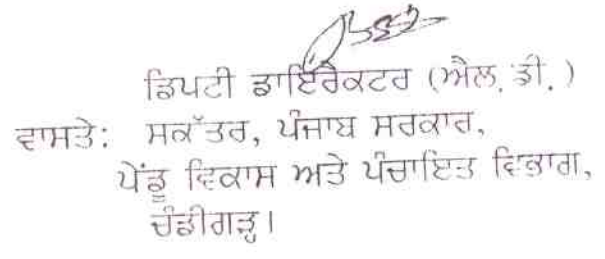 ਡਿਪਟੀ ਡਾਇਰੈਕਟਰ (ਐਲ. ਡੀ.)
ਵਾਸਤੇ: ਸਕੱਤਰ, ਪੰਜਾਬ ਸਰਕਾਰ,
ਪੇਂਡੂ ਵਿਕਾਸ ਅਤੇ ਪੰਚਾਇਤ ਵਿਭਾਗ,
ਚੰਡੀਗੜ੍ਹ।